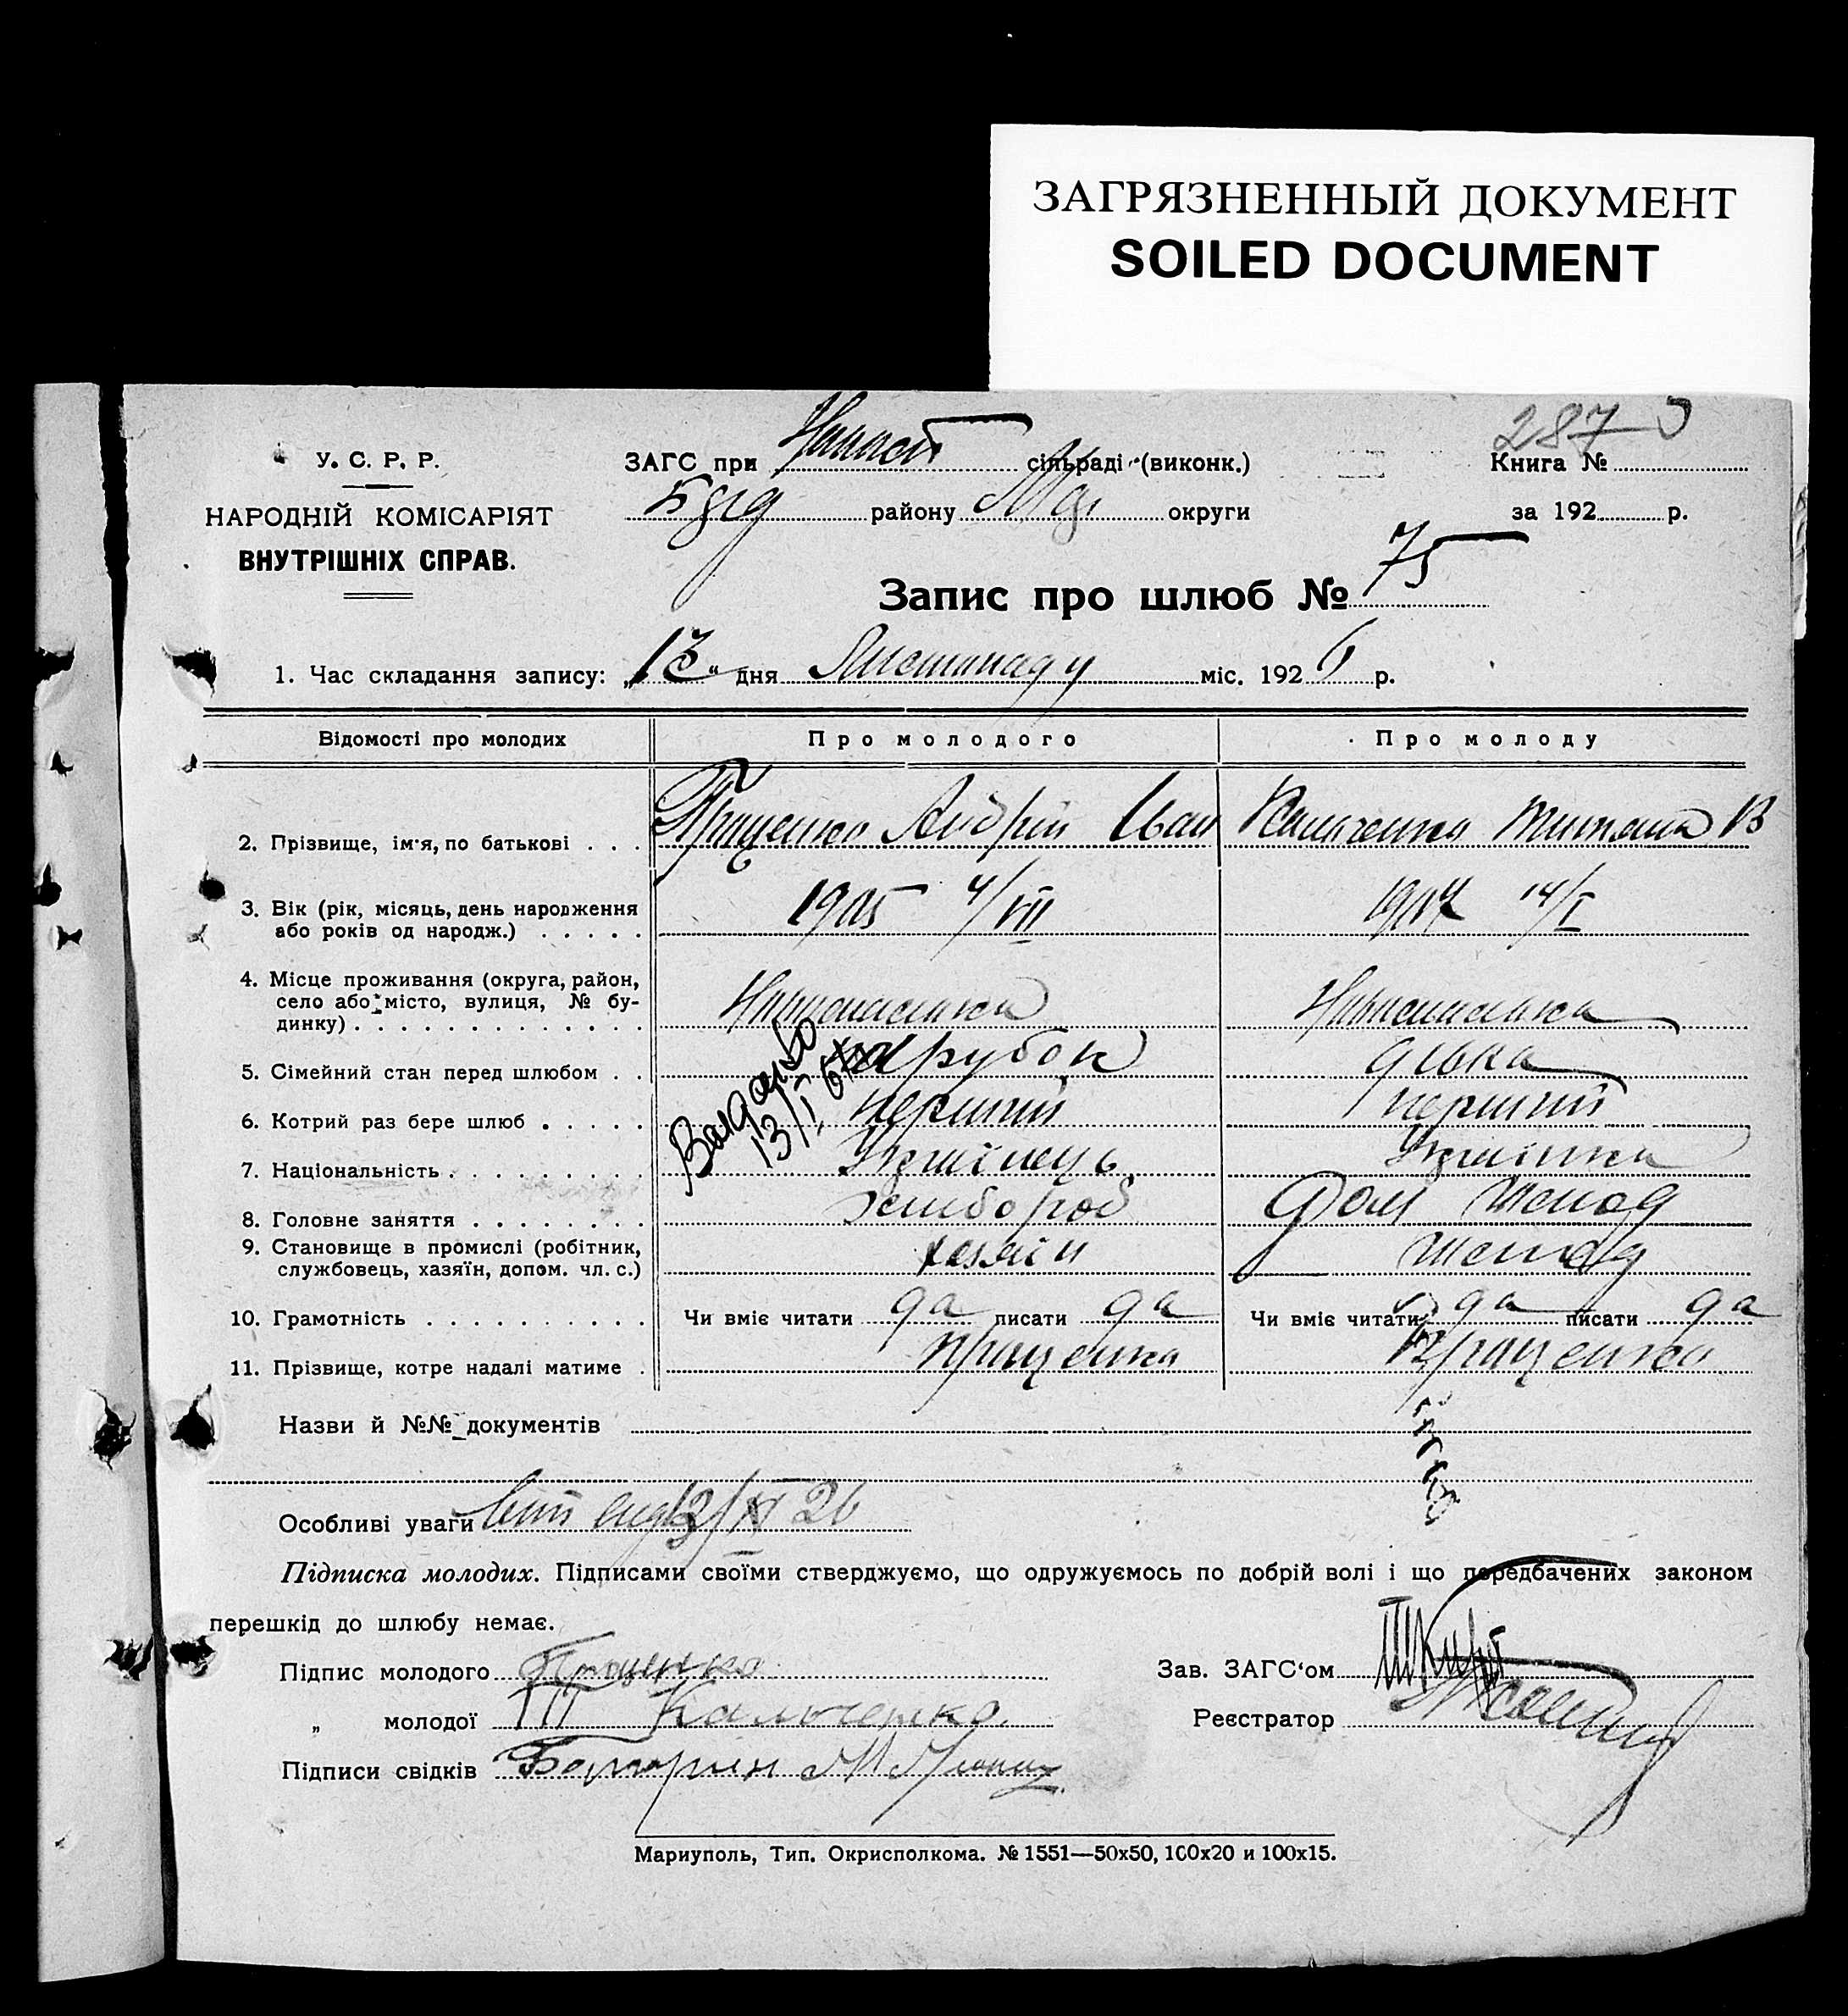 ЗАГРЯЗНЕННЫЙ ДОКУМЕНТ
SOILED DOCUMENT
287
У. С. Р. Р.
НАРОДНІЙ КОМІСАРІЯТ
ВНУТРІШНІХ СПРАВ.
ЗАГС при сільраді (виконк.)
району округи
Книга №
за 192 р.
Запис про шлюб № 75
1. Час складання запису: „13“ дня Листопаду міс. 1926 р.
Відомості про молодих Про молодого Про молоду
2. Прізвище, ім'я, по батькові . . . Проценко Андрій Иван Кальченко Титяна В
3. Вік (рік, місяць, день народження
або років од народж.) . . . . . 1905 4/VII 1907 14/I
4. Місце проживання (округа, район,
село або місто, вулиця, № бу-
динку) . . . . . . . . . . . . .
5. Сімейний стан перед шлюбом . . парубок дівка
6. Котрий раз бере шлюб . . . . . перший перший
7. Національність . . . . . . . . . Українець Українка
8. Головне заняття . . . . . . . . хлибороб Дом
9. Становище в промислі (робітник,
службовець, хазяїн, допом. чл. с.) хазяїн
10. Грамотність . . . . . . . . . . Чи вміє читати да писати да Чи вміє читати да писати да
11. Прізвище, котре надалі матиме . Проценко Проценко
Назви й №№ документів
Особливі уваги 26
Підписка молодих. Підписами своїми стверджуємо, що одружуємось по добрій волі і що передбачених законом
перешкід до шлюбу немає.
Підпис молодого Проценко Зав. ЗАГС'ом
„ молодої Т Кальченко. Реєстратор
Підписи свідків
Мариуполь, Тип. Окрисполкома. № 1551—50x50, 100x20 и 100x15.